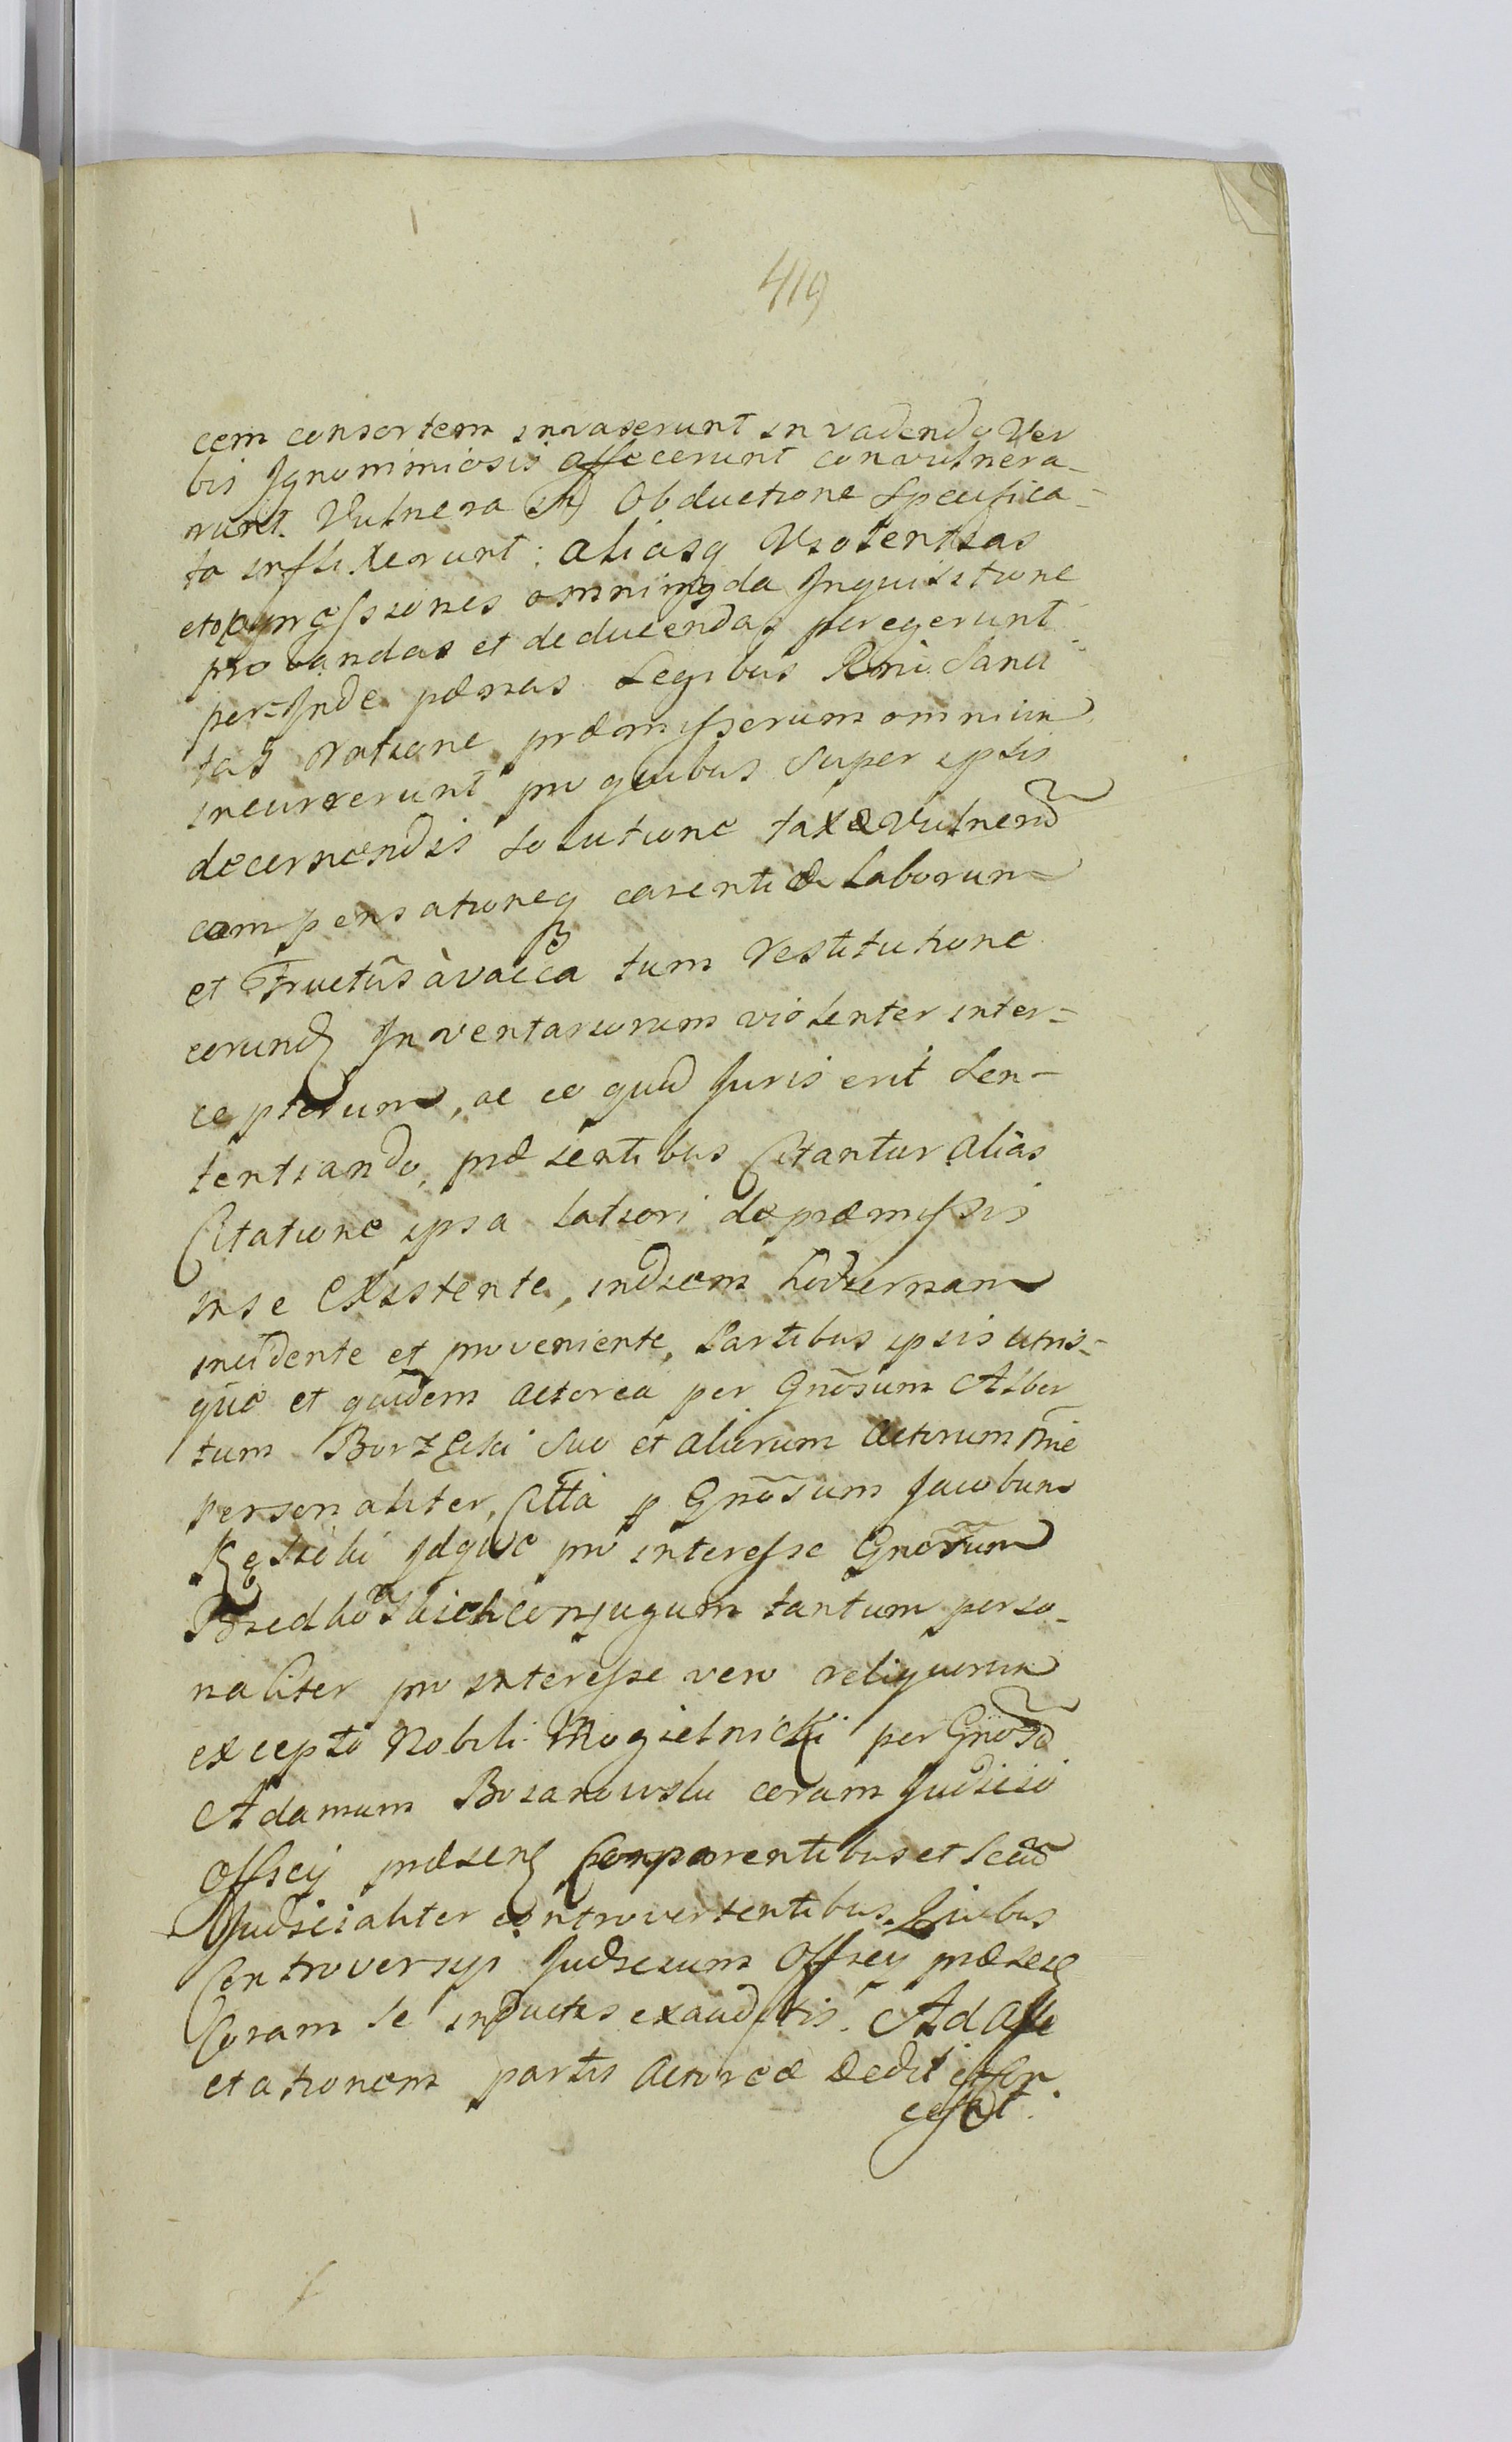 419
cem consortem invaserunt invadendo Ver
bis Ignominiosis affecerunt convulnera-
runt. Vulnera in Obductione Specifica-
ta inflixerunt: aliasq Violentias
et oppressiones omnimoda Inquisitione
probandas et deducendas peregerunt
per-Inde pænas Legibus Rñi Sanci
tas ratione præmissorum omnium
incurrerunt pro quibus super ipsis
decernendis solutione taxæ Vulnerũ
compensationeq carentiæ Laborum
et Fructũs à vacca tum restitutione
eorund Inventariorum violenter inter-
ceptorum, ac eo quod Juris erit sen-
tentiando, præsentibus Citantur alias
Citatione ipsa latiori de præmissis
in se existente, in diem hodiernam
incidente et proveniente, Partibus ipsis utris-
que et quidem actorea per Gnõsum Alber
tum Borzęcki suo et aliorum actorum nñe
personaliter, Citta p Gnõsum Jacobum
Kęsicki Idque pro interesse Gnõrum
conjugum tantum perso-
naliter pro interesse vero reliquorum
excepto Nobili Mogielnicki per Gnõsũ
Adamum Bozanowski coram Judicio
Officij præsen Comparentibus et secũ
Judicialiter controvertentibus. Quibus
Controversijs Judicium Officij præsens
Coram se inductis exauditis. Ad affe
ctationem partis actoreæ dedit et con
cessit.